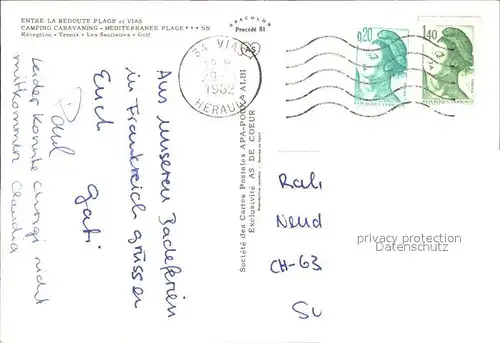 ENTRE LA REDOUTE PLAGE et VIAS
CAMPING CARAVANING - MEDITERRANEE PLAGE *** NN
Réception - Tennis - Les Sanitaires - Golf
APACOLOR
Procédé 81
34 VIAS
1982
HERAULT
AS
0,20
1,40
Aus unseren Badeferien
in Frankreich grüssen
Euch Gabi
Paul
Leider konnte nicht
mitkommen Claudia
Société des Cartes Postales APA-POUX ALBI
Exclusivité AS DE COEUR
Rali
Neud
CH-63
privacy protection
Datenschutz